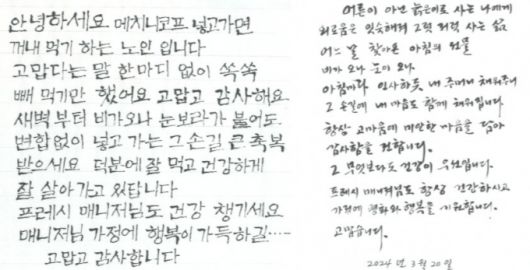 안녕하세요 메치니코프 넣고가면
꺼내 먹기 하는 노인 입니다
고맙다는 말 한마디 없이 쏙쏙
빼 먹기만 했어요 고맙고 감사해요
새벽 부터 비가오나 눈보라가 불어도
변함없이 넣고 가는 그손길 큰 축복
받으세요 덕분에 잘 먹고 건강하게
잘 살아가고 있답니다
프레시 매니저님도 건강 챙기세요
매니저님 가정에 행복이 가득하길……
고맙고 감사합니다
어른이 아닌 늙은이로 사는 나에게
외로움은 익숙해져 그럭 저럭 사는 삶
어느 날 찾아온 아침의 선물
비가 오나 눈이 오나
아침마다 인사하듯 내 주머니 채워주니
그 손길에 내 마음도 함께 채워집니다
항상 고마움에 미안한 마음을 담아
감사함을 전합니다.
그 무엇보다도 건강이 우선입니다.
프레시 매니저님도 항상 건강하시고
가정에 평화와 행복을 기원합니다.
고맙습니다.
2024년 3월 20일